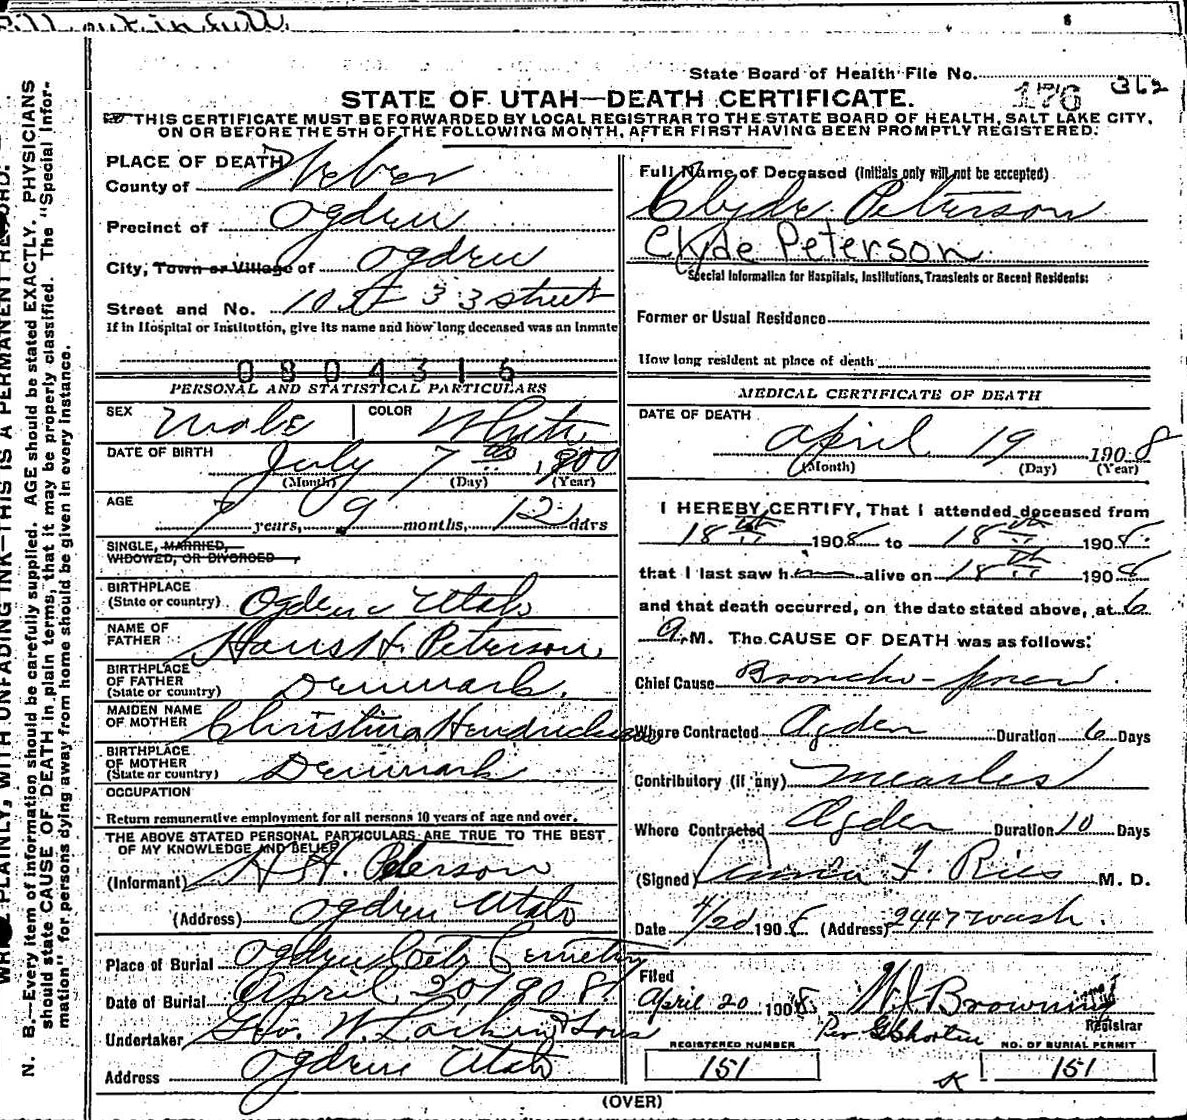 Fill out in full.
State Board of Health File No. 176 362
STATE OF UTAH—DEATH CERTIFICATE.
THIS CERTIFICATE MUST BE FORWARDED BY LOCAL REGISTRAR TO THE STATE BOARD OF HEALTH, SALT LAKE CITY,
ON OR BEFORE THE 5TH OF THE FOLLOWING MONTH, AFTER FIRST HAVING BEEN PROMPTLY REGISTERED.
PLAINLY, WITH UNFADING INK—THIS IS A PERMANENT RECORD.
N. B.—Every item of information should be carefully supplied. AGE should be stated EXACTLY. PHYSICIANS
should state CAUSE OF DEATH in plain terms, that it may be properly classified. The "Special Infor-
mation" for persons dying away from home should be given in every instance.
PLACE OF DEATH
County of Weber
Precinct of Ogden
City, Town or Village of Ogden
Street and No. 33 street
If in Hospital or Institution, give its name and how long deceased was an inmate
0804316
PERSONAL AND STATISTICAL PARTICULARS
SEX Male COLOR White
DATE OF BIRTH July 7 1900
(Month) (Day) (Year)
AGE 7 years, 9 months, 12 days
SINGLE, MARRIED,
WIDOWED, OR DIVORCED
BIRTHPLACE
(State or country) Ogden Utah
NAME OF
FATHER Hans H. Peterson
BIRTHPLACE
OF FATHER
(State or country) Denmark.
MAIDEN NAME
OF MOTHER Christina
BIRTHPLACE
OF MOTHER
(State or country) Denmark
OCCUPATION
Return remunerative employment for all persons 10 years of age and over.
THE ABOVE STATED PERSONAL PARTICULARS ARE TRUE TO THE BEST
OF MY KNOWLEDGE AND BELIEF
(Informant) H H. Peterson
(Address) Ogden Utah
Place of Burial Ogden City Cemetery
Date of Burial April 20, 1908.
Undertaker Geo. W. Larkin & Sons
Address Ogden Utah
Full Name of Deceased (Initials only will not be accepted)
Clyde Peterson
Clyde Peterson
Special Information for Hospitals, Institutions, Transients or Recent Residents:
Former or Usual Residence
How long resident at place of death
MEDICAL CERTIFICATE OF DEATH
DATE OF DEATH
April 19 1908
(Month) (Day) (Year)
I HEREBY CERTIFY, That I attended deceased from
18th 1908 to 18th 1908.
that I last saw h alive on 18th 1908
and that death occurred, on the date stated above, at 6
A. M. The CAUSE OF DEATH was as follows:
Chief Cause Broncho-pneu
Where Contracted Ogden Duration 6 Days
Contributory (if any) measles
Where Contracted Ogden Duration 10 Days
(Signed) F. Ries M. D.
Date 4/20 1908 (Address) 2447 Wash.
Filed
April 20 1908 W J Browning
Registrar
Per G Shorten
REGISTERED NUMBER
151
NO. OF BURIAL PERMIT
151
(OVER)